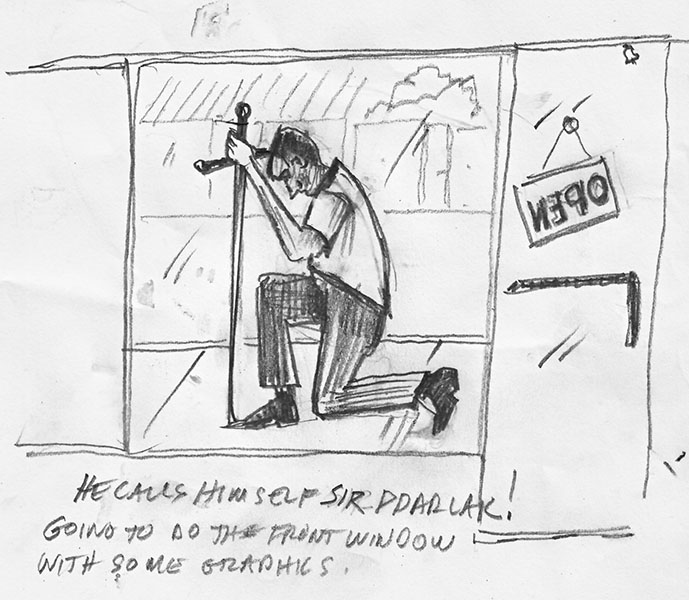 OPEN
HE CALLS HIMSELF SIR DDARLAK!
GOING TO DO THE FRONT WINDOW
WITH SOME GRAPHICS.